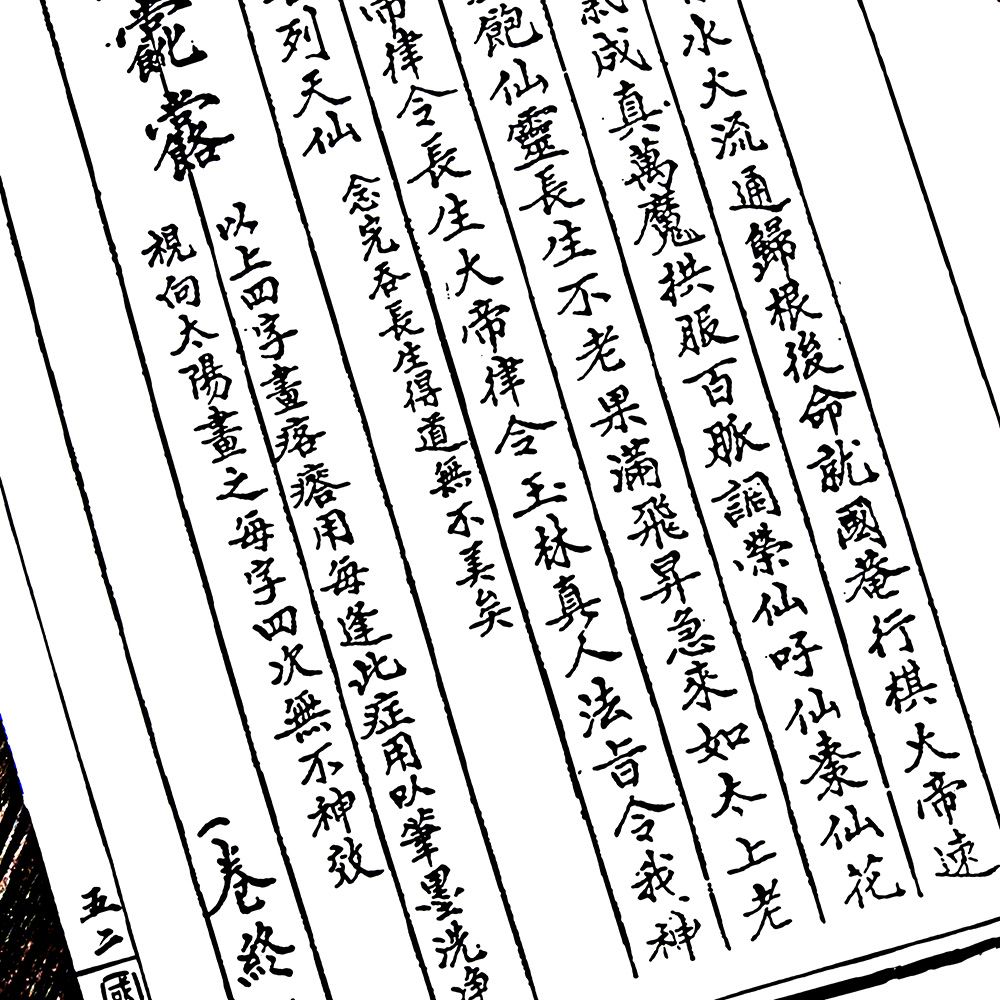 水火流通歸根後命就國菴行棋大帝速
成真萬魔拱服百脉調榮仙吁仙棗仙花
飽仙靈長生不老果滿飛昇急來如太上老
帝律令長生大帝律令玉林真人法旨令我神
列天仙 念完吞長生得道無不美矣
以上四字畫瘩瘩用每逢此症用以筆墨洗净
視向太陽畫之每字四次無不神效
一卷終
五二